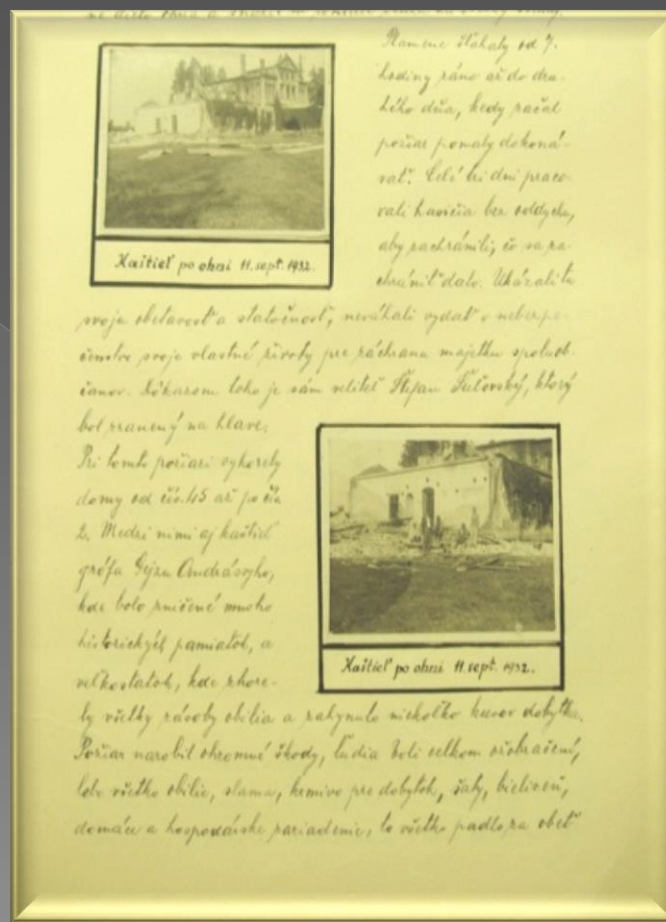 Plamene šľahaly od 7.
hodiny ráno až do dru-
hého dňa, kedy začal
požiar pomaly dokoná-
vať. Celé tri dni praco-
vali hasičia bez oddychu,
aby zachránili, čo sa za-
chrániť dalo. Ukázali tu
Kaštieľ po ohni 11. sept. 1932.
svoju obetavosť a statočnosť, neváhali vydať v nebezpe-
čenstvo svoje vlastné životy pre záchranu majetku spoluob-
čanov. Dôkazom toho je sám veliteľ Štefan, ktorý
bol zranený na hlave.
Pri tomto požiari vyhorely
domy od čís. 45 až po čís.
2. Medzi nimi aj kaštieľ
grófa Gejzu Andrássyho,
kde bolo zničené mnoho
historických pamiatok, a
veľkostatok, kde zhore-
Kaštieľ po ohni 11. sept. 1932.
ly všetky zásoby obilia a zahynulo niekoľko kusov dobytka.
Požiar narobil ohromné škody, ľudia boli celkom ožobračení,
lebo všetko obilie, slama, krmivo pre dobytok, šaty, bielizeň,
domáce a hospodárske zariadenie, to všetko padlo za obeť